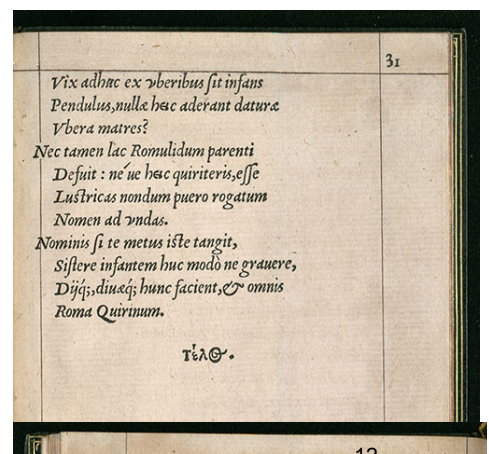 31
Vix adhæc ex vberibus sit infans
Pendulus, nullæ hæc aderant daturæ
Vbera matres?
Nec tamen lac Romulidum parenti
Defuit : né ue hæc quiriteris, esse
Lustricas nondum puero rogatum
Nomen ad vndas.
Nominis si te metus iste tangit,
Sistere infantem huc modò ne grauere,
Dijq́;, diuæq́; hunc facient, & omnis
Roma Quirinum.
Τέλος.